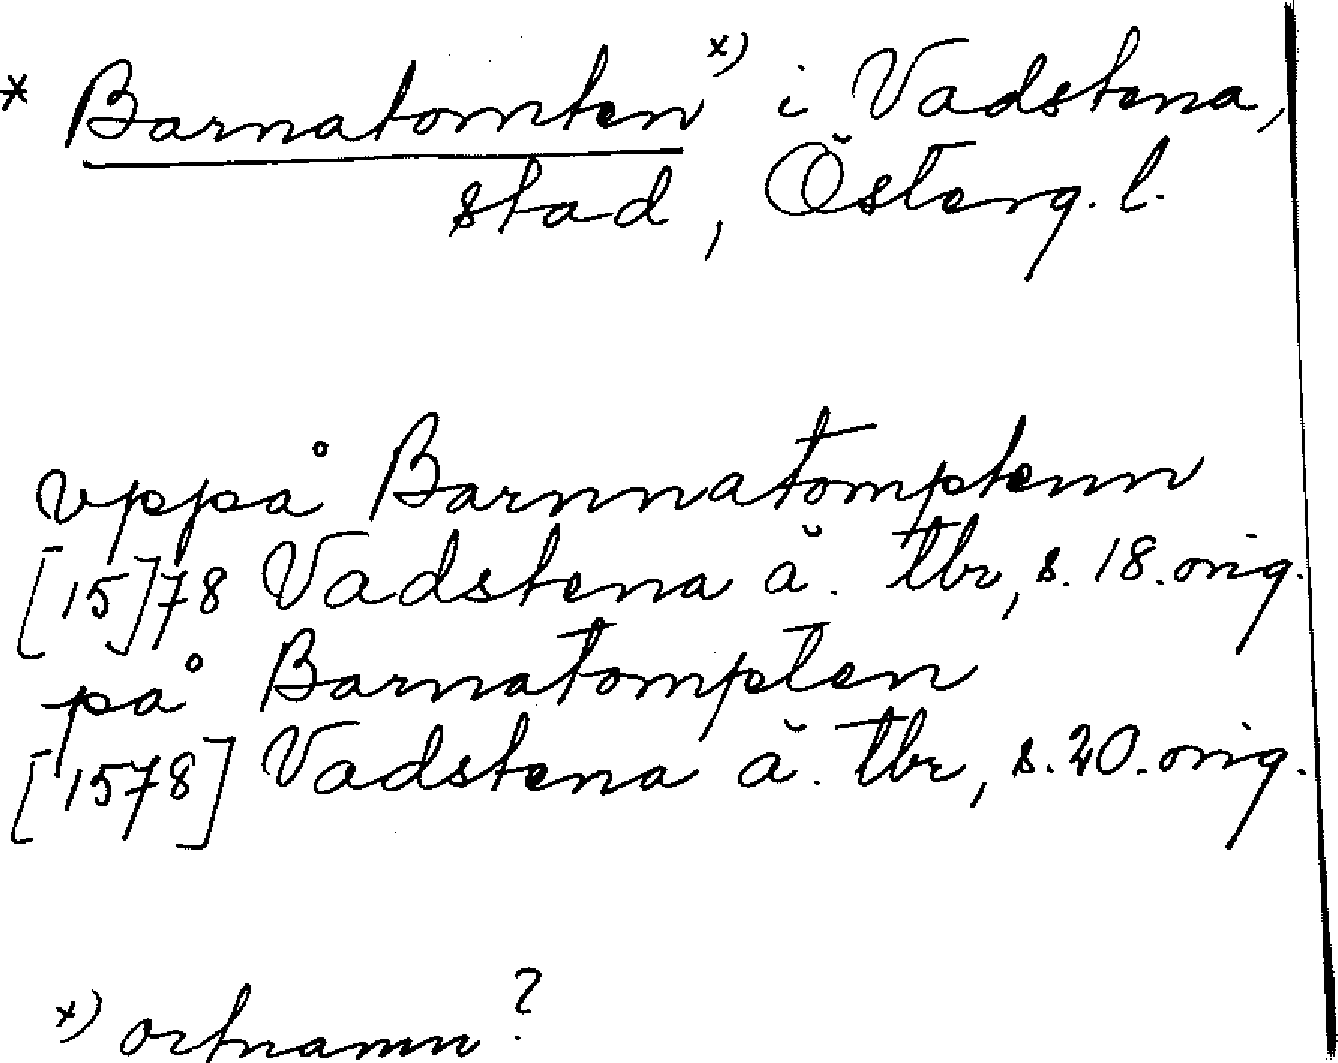 * Barnatomten x) i Vadstena,
stad, Österg. l.
vppå Barnnatomptenn
[15]78 Vadstena ä. tbr, s. 18. orig.
på Barnatompten
[1578] Vadstena ä. tbr, s. 20. orig.
x) ortnamn?